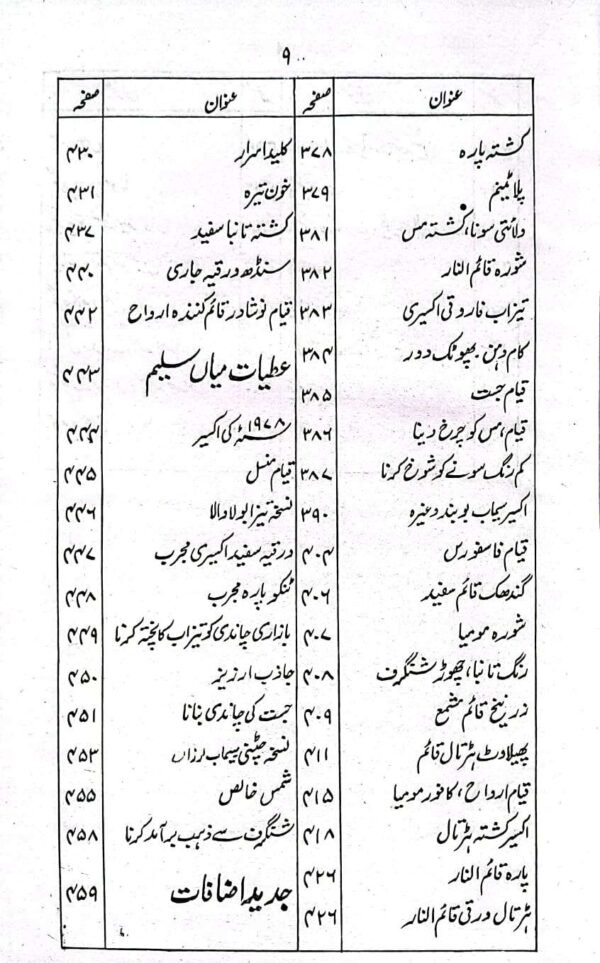 ۹
عنوان صفحہ
کشتہ پارہ ۳۷۸
پلاٹینم ۳۷۹
ولائتی سونا، کشتہ مس ۳۸۱
شورہ قائم النار ۳۸۲
تیزاب فاروقی اکسیری ۳۸۳
کام دہن۔ پھوٹک دور ۳۸۴
قیام جست ۳۸۵
قیام، مس کو چرخ دینا ۳۸۶
کم رنگ سونے کو شوخ کرنا ۳۸۷
اکسیر سیماب بوبند وغیرہ ۳۹۰
قیام فاسفورس ۴۰۴
گندھک قائم سفید ۴۰۶
شورہ مومیا ۴۰۷
رنگ تانبا، چھوڑ شنگرف ۴۰۸
زرنیخ قائم مشمع ۴۰۹
پھیلاوٹ ہڑتال قائم ۴۱۱
قیام ارواح، کافور مومیا ۴۱۵
اکسیر کشتہ ہڑتال ۴۱۸
پارہ قائم النار ۴۲۶
ہڑتال ورقی قائم النار ۴۲۶
عنوان صفحہ
کلید اسرار ۴۳۰
خون تیرہ ۴۳۱
کشتہ تانبا سفید ۴۳۷
سنڈھ ورقیہ جاری ۴۴۰
قیام نوشادر قائم کنندہ ارواح ۴۴۲
عطیات میاں سلیم ۴۴۳
۱۹۷۸ء کی اکسیر ۴۴۴
قیام منسل ۴۴۵
نسخہ تیزابولا والا ۴۴۶
ورقیہ سفید اکسیری مجرب ۴۴۷
ٹنکو پارہ مجرب ۴۴۸
بازاری چاندی کو تیزاب کا پختہ کرنا ۴۴۹
جاذب ارزیز ۴۵۰
جست کی چاندی بنانا ۴۵۱
نسخہ چٹپنی سیماب لرزاں ۴۵۳
شمس خالص ۴۵۵
شنگرف سے ذہب برآمد کرنا ۴۵۸
جدید اضافات ۴۵۹